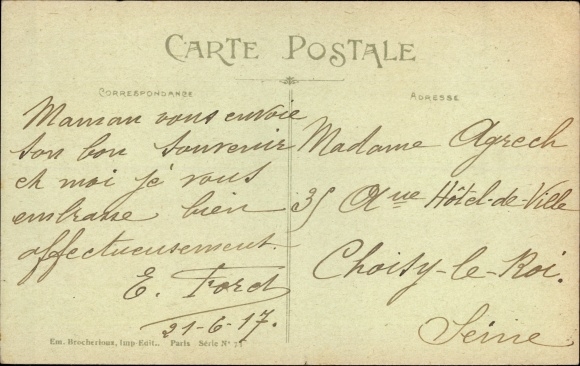 CARTE POSTALE
CORRESPONDANCE
Maman vous envoie
son bon souvenir
et moi je vous
embrasse bien
affectueusement.
E. Ford
21-6-17.
ADRESSE
Madame Agrech
35 Aue Hôtel-de-Ville
Choisy-le-Roi.
Seine
Em. Brocherioux, Imp-Edit., Paris Série N°